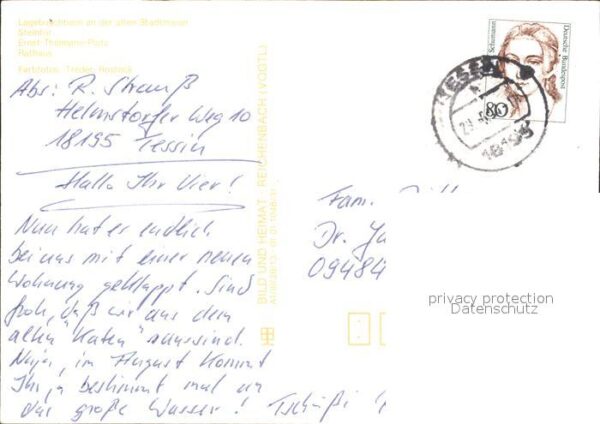 Lagebuschturm an der alten Stadtmauer
Steintor
Ernst-Thälmann-Platz
Rathaus
Farbfotos: Treder, Rostock
Abs: R. Strauß
Helmstorfer Weg 10
18195 Tessin
Hallo Ihr Vier!
Nun hat er endlich
bei uns mit einer neuen
Wohnung geklappt. Sind
froh, daß wir aus dem
alten "Katen" raussind.
Naja, im August kommt
Ihr ja bestimmt mal an
das große Wasser! Tschüßi
BILD UND HEIMAT REICHENBACH (VOGTL)
Schumann
Deutsche Bundespost
80
TESSIN
18195
Fam.
Dr.
09484
privacy protection
Datenschutz